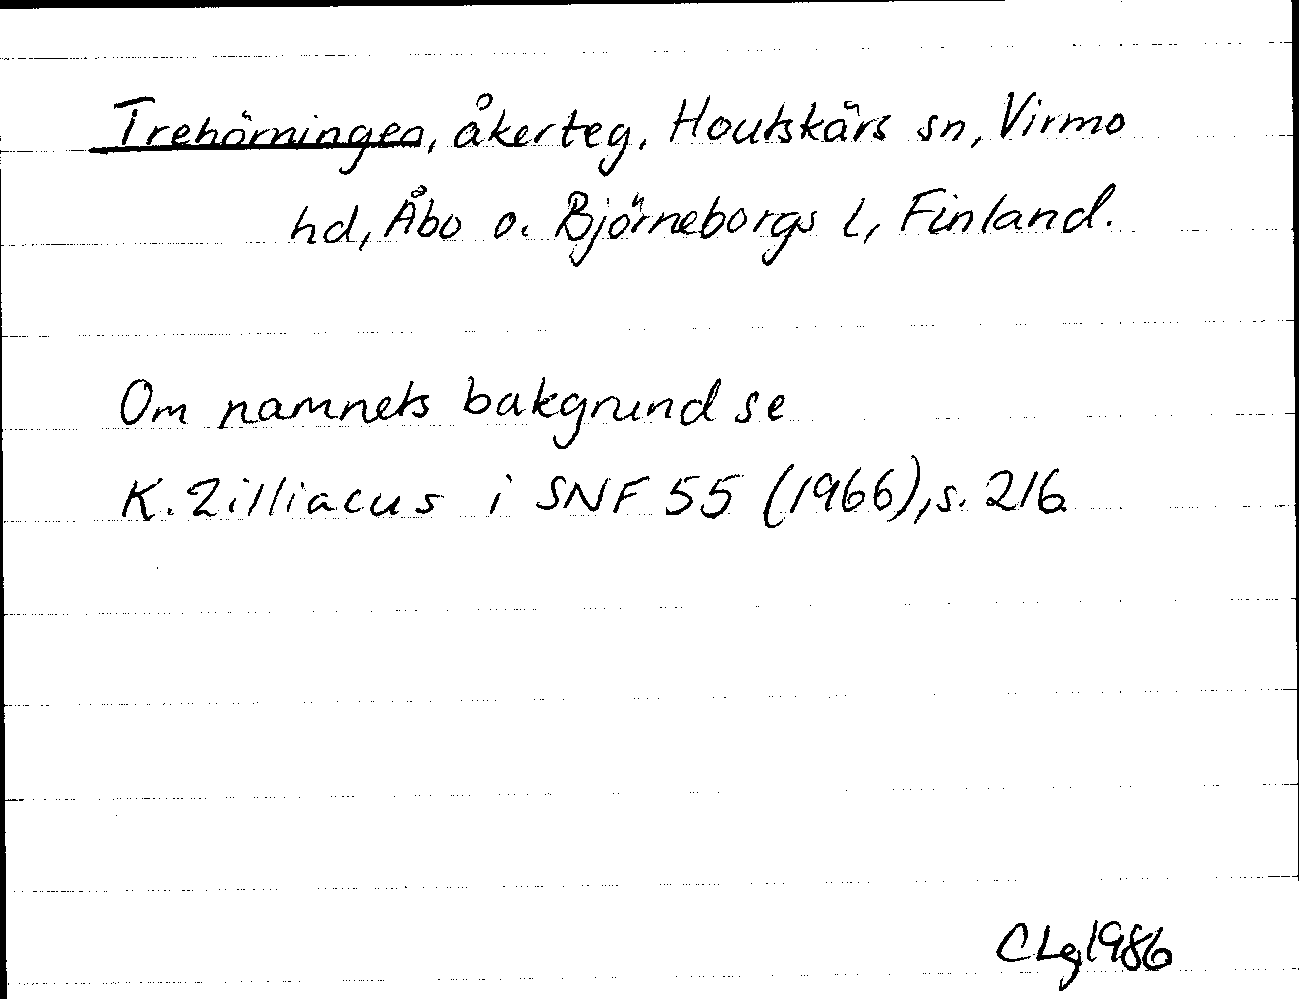 Trehörningen, åkerteg, Houtskärs sn, Virmo
hd, Åbo o. Björneborgs l, Finland.
Om namnets bakgrund se
K. Zilliacus i SNF 55 (1966), s. 216.
CLg 1986